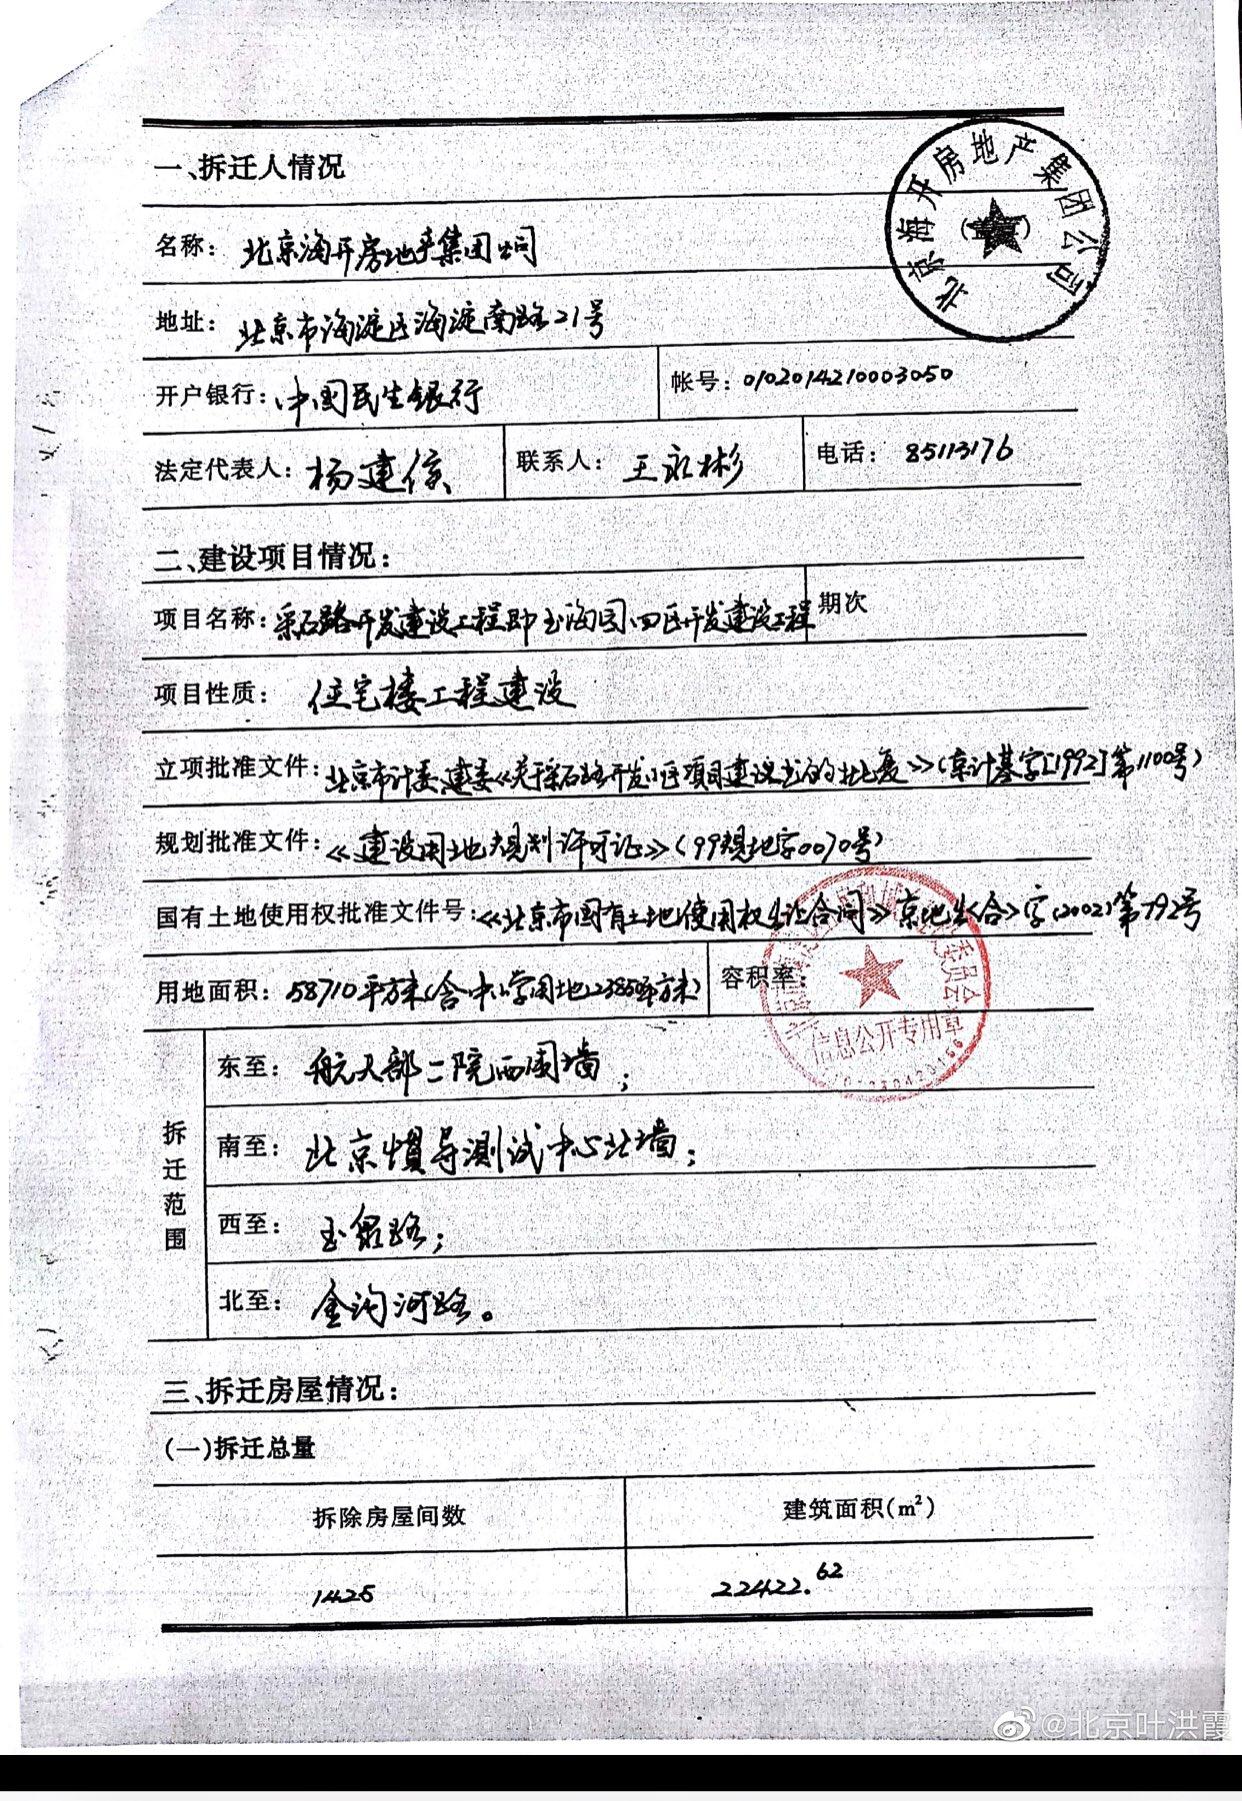 一、拆迁人情况
北京海开房地产集团公司
名称：北京海开房地产集团公司
地址：北京市海淀区海淀南路21号
开户银行：中国民生银行 帐号：0102014210003050
法定代表人：杨建 联系人：王永彬 电话：85113176
二、建设项目情况：
项目名称：采石路开发建设工程即玉海园四区开发建设工程 期次
项目性质：住宅楼工程建设
立项批准文件：北京市计委、建委《关于采石路开发小区项目建议书的批复》(京计基字[1992]第1100号)
规划批准文件：《建设用地规划许可证》(99规地字0070号)
国有土地使用权批准文件号：《北京市国有土地使用权出让合同》京地出<合>字(2002)第792号
用地面积：58710平方米(含中小学用地 平方米) 容积率：
信息公开专用章
拆迁范围
东至：航天部二院西围墙；
南至：北京惯导测试中心北墙；
西至：玉泉路；
北至：金沟河路。
三、拆迁房屋情况：
(一)拆迁总量
拆除房屋间数 建筑面积(m²)
1425 22422.62
@北京叶洪霞